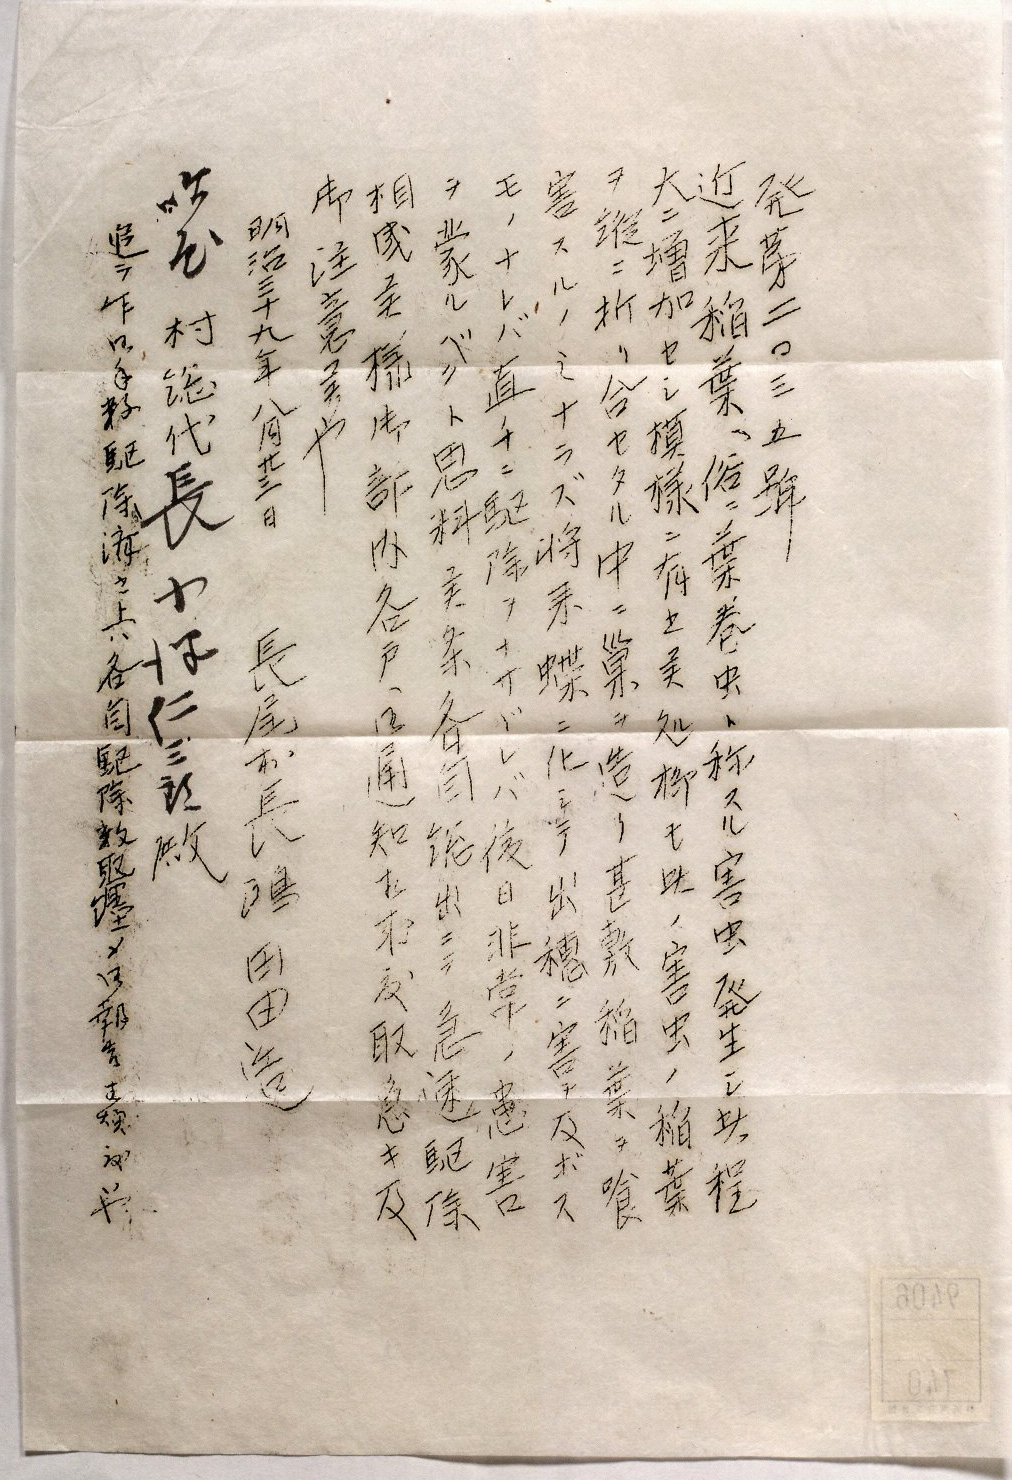 発第二〇三五号
近来稲葉ヘ俗ニ葉巻虫ト称スル害虫発生シ此程
大ニ増加セシ模様ニ有之候処抑モ此ノ害虫ノ稲葉
ヲ縦ニ折リ合セタル中ニ巣ヲ造リ甚敷稲葉ヲ喰
害スルノミナラズ将来蝶ニ化シテ出穂ニ害ヲ及ボス
モノナレバ直チニ駆除ヲナサヾレバ後日非常ノ患害
ヲ蒙ルベクト思料候条各自総出ニテ急速駆除
相成候様御部内各戸ヘ御通知相成度取急キ及
御注意候也
明治三十九年八月廿三日
長尾村長 田造
村総代 長 仁三郎殿
追テ乍御手数駆除済之上ハ各自駆除数取纏メ御報告
9406
740